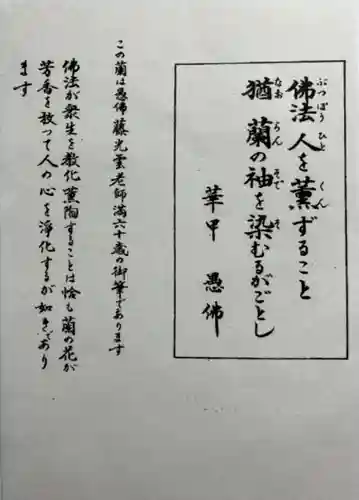 佛法人を薫ずること
ぶつぽう ひと くん
猶蘭の袖を染むるがごとし
なお らん そで そ
華甲 愚佛
この蘭は愚佛藤光雲老師満六十歳の御筆であります
佛法が衆生を教化薫陶することは恰も蘭の花が
芳香を放って人の心を浄化するが如きであり
ます